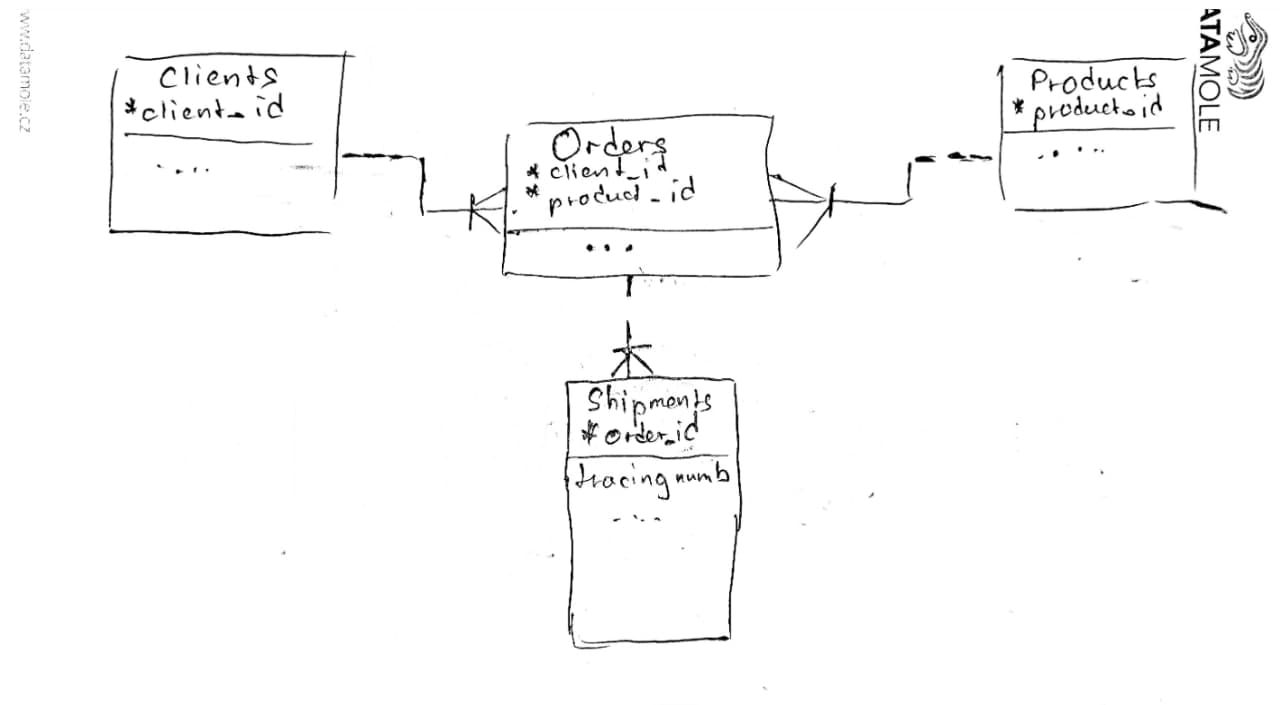 www.datamole.cz
Clients
*client_id
....
Orders
* client_id
* product_id
...
Products
* product_id
.....
ATAMOLE
Shipments
* order_id
tracing numb
....